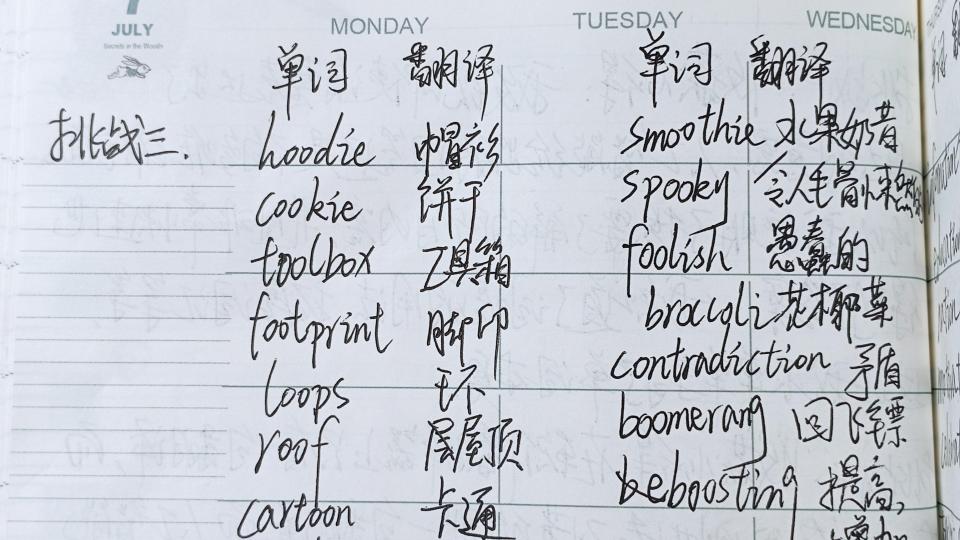 JULY
Secrets in the Woods
MONDAY TUESDAY WEDNESDAY
单词 翻译 单词 翻译
挑战三. hoodie 帽衫 smoothie 水果奶昔
cookie 饼干 spooky 令人毛骨悚然
toolbox 工具箱 foolish 愚蠢的
footprint 脚印 broccoli 花椰菜
loops 环 contradiction 矛盾
roof 层屋顶 boomerang 回飞镖
cartoon 卡通 beboosting 提高,
增加